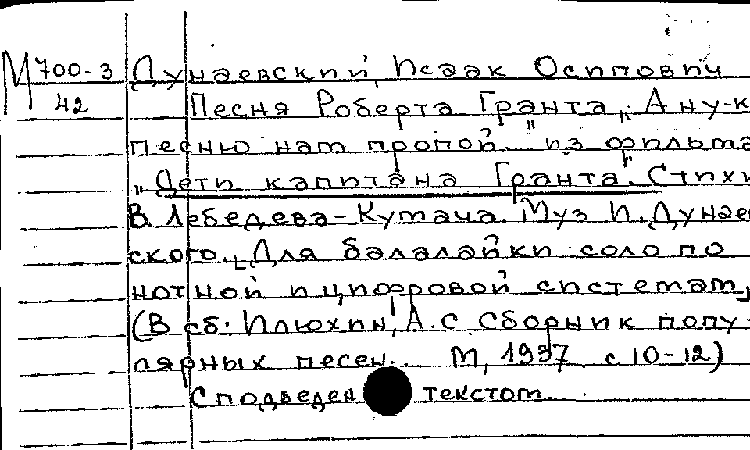 М 700-3 Дунаевский, Исаак Осипович
42 Песня Роберта Гранта „А ну-к
песню нам пропой..." из фильма
„Дети капитана Гранта". Стихи
В. Лебедева-Кумача. Муз И. Дунаев
ского. Для балалайки соло по
нотной и цифровой системам,
(В сб: Илюхин, А.С. Сборник попу-
лярных песен.. М, 1937 с 10-12)
С подведен текстом.